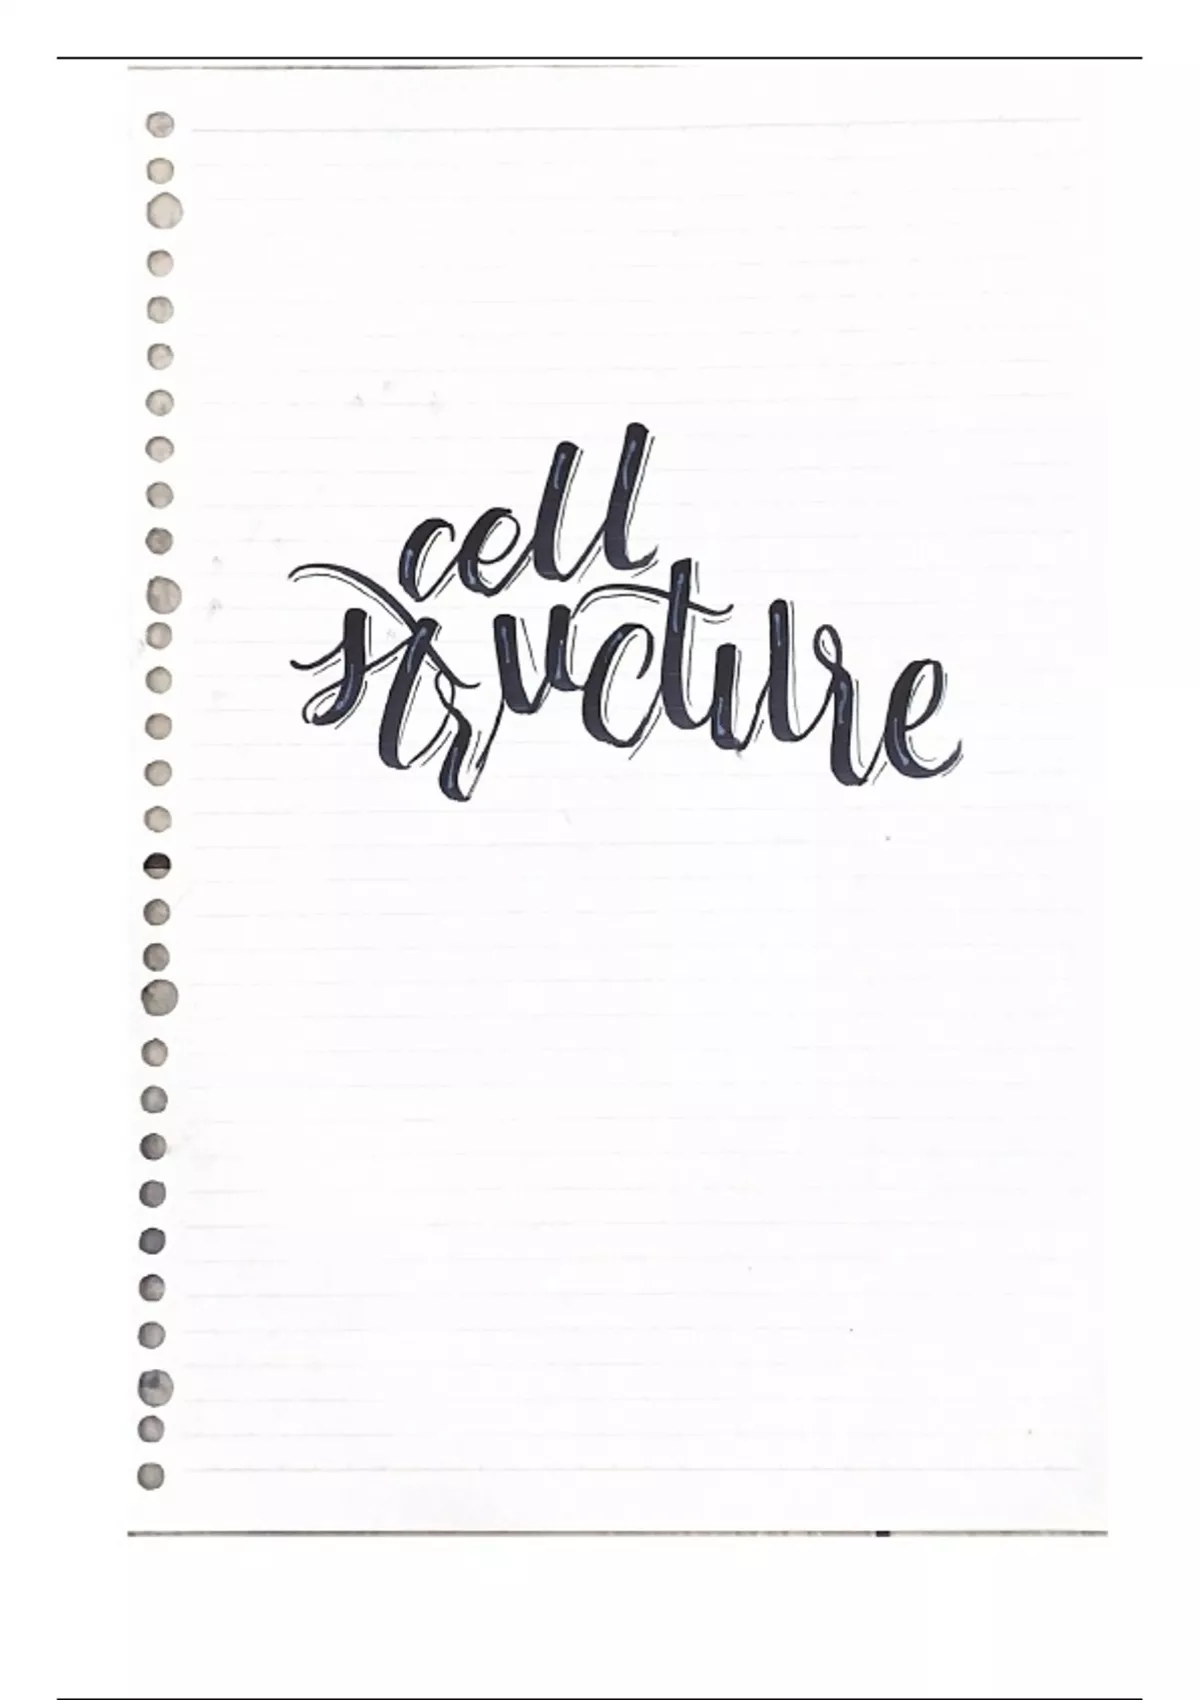 cell
structure